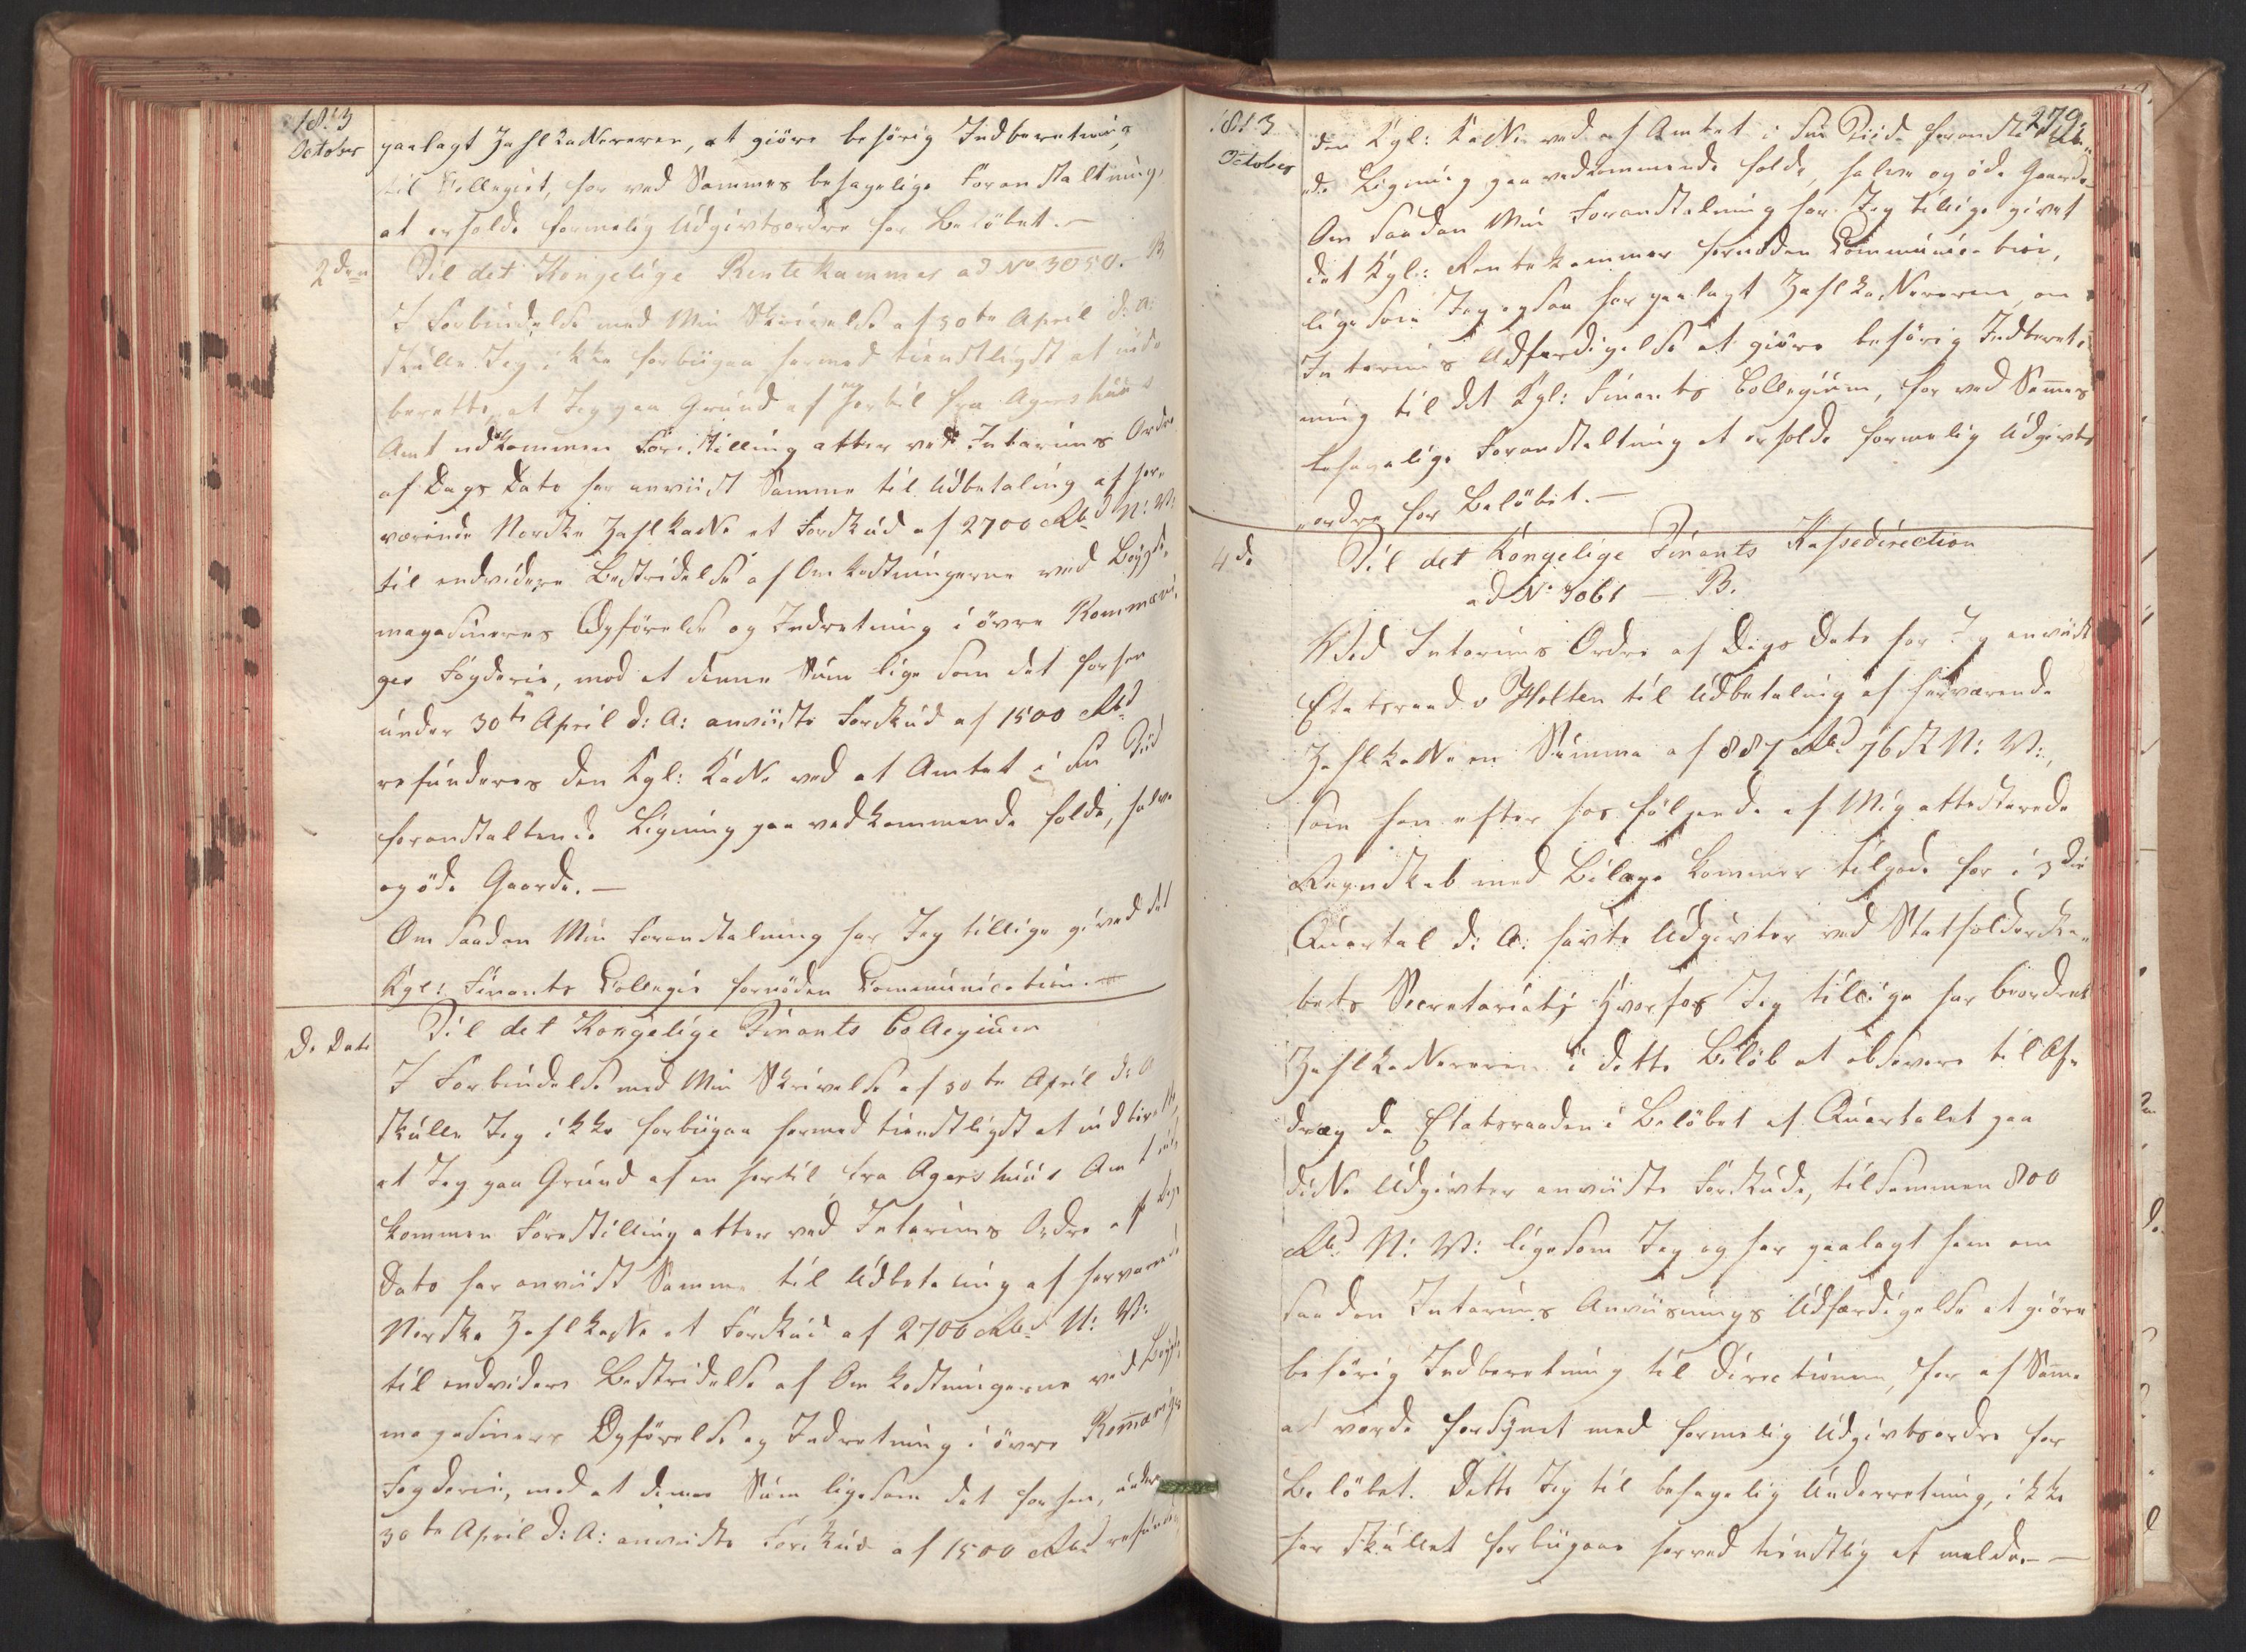 1813
October
paalagt Zahlkassereren, at giöre behörig Indberetning
til Collegiet, for ved Sammes behagelige Foranstaltning,
at erholde formelig Udgivtsordre for Belöbet.—
2den
Til det Kongelige Rentekammer ad No 3050.— B
I Forbindelse med Min Skrivelse af 30te April d: A:
skulle Jeg ikke forbiigaae hermed tienstligst at inde
berette, at Jeg paa Grund af hertil fra Agershuus
Amt indkommen Forestilling atter ved Interims Ordre
af Dags Dato har anviist Samme til Udbetaling af her-
værende Norske Zahlkasse et Forskud af 2700 Rbd N: V:
til endvidere Bestridelse af Omkostningerne ved Bøigde
magasiners Opförelse og Indretning i övre Rommeri,
ges Fogderie, mod at denne Sum lige som det forhen
under 30te April d: A: anviiste Forskud af 1500 Rbd
refunderes den Kgl: Kasse ved at Amtet i sin Tiid
foranstaltende Ligning paa vedkommende hele, halve
og öde Gaarde.—
Om saadan Min Foranstaltning har Jeg tillige gived det
Kgl: Finants Collegie fornöden Communication.—
D. Dato
Til det Kongelige Finants Collegium
I Forbindelse med Min Skrivelse af 30te April d: A
skulle Jeg ikke forbiigaae hermed tienstligst at indberette,
at Jeg paa Grund af en hertil fra Agershuus Amt ind
kommen Forestilling atter ved Interims Ordre af Dags
Dato har anviist Samme til Udbetaling af herværende
Norske Zahlkasse et Forskud af 2700 Rbd N: V:
til endvidere Bestridelse af Omkostningerne ved Bøigde
magasiners Opförelse og Indretning i övre Romerige
Fogderie, mod at denne Sum ligesom det forhen, under
30te April d: A: anviiste Forskud af 1500 Rbd refunderes
1813
October
279.
den Kgl: Kasse ved af Amtet i sin Tiid foranstalten
de Ligning paa vedkommende hele, halve og öde Gaarde.
Om saadan Min Foranstaltning har Jeg tillige givet
det Kgl: Rentekammer fornöden Communication,
ligesom Jeg og saa har paalagt Zahlkassereren, om
Interims Udfærdigelse at giöre behörig Indberet-
ning til det Kgl: Finants Collegium, for ved Sammes
behagelige Foranstaltning at erholde formelig Udgivts
ordre for Belöbet.—
4de
Til det Kongelige Finants Kassedirection
ad No 3061 — B.
Ved Interims Ordre af Dags Dato har Jeg anviist
Etatsraad v Holten til Udbetaling af herværende
Zahlkasse en Summa af 887 Rbd 76 S N: V:,
som han efter hos følgende af Mig attesterede
Regnskab med Bilage kommer tilgode for i 3die
Quartal d: A: havte Udgivter ved Statholderska-
bets Secretariat; hvorfor Jeg tillige har beordret
Zahlkassereren i dette Belöb at observere til Af-
drag de Etatsraaden i Belöbet af Quartalet paa
disse Udgivter anviiste Forskude, tilsammen 800
Rbd N: V: ligesom Jeg og har paalagt ham om
saadan Interims Anviisnings Udfærdigelse at giöre
behörig Indberetning til Directionen, for af Samme
at vorde forsynet med formelig Udgivtsordre for
Belöbet. Dette Jeg til behagelig Underretning, ikke
har skullet forbiigaae herved tienstlig at melde.—